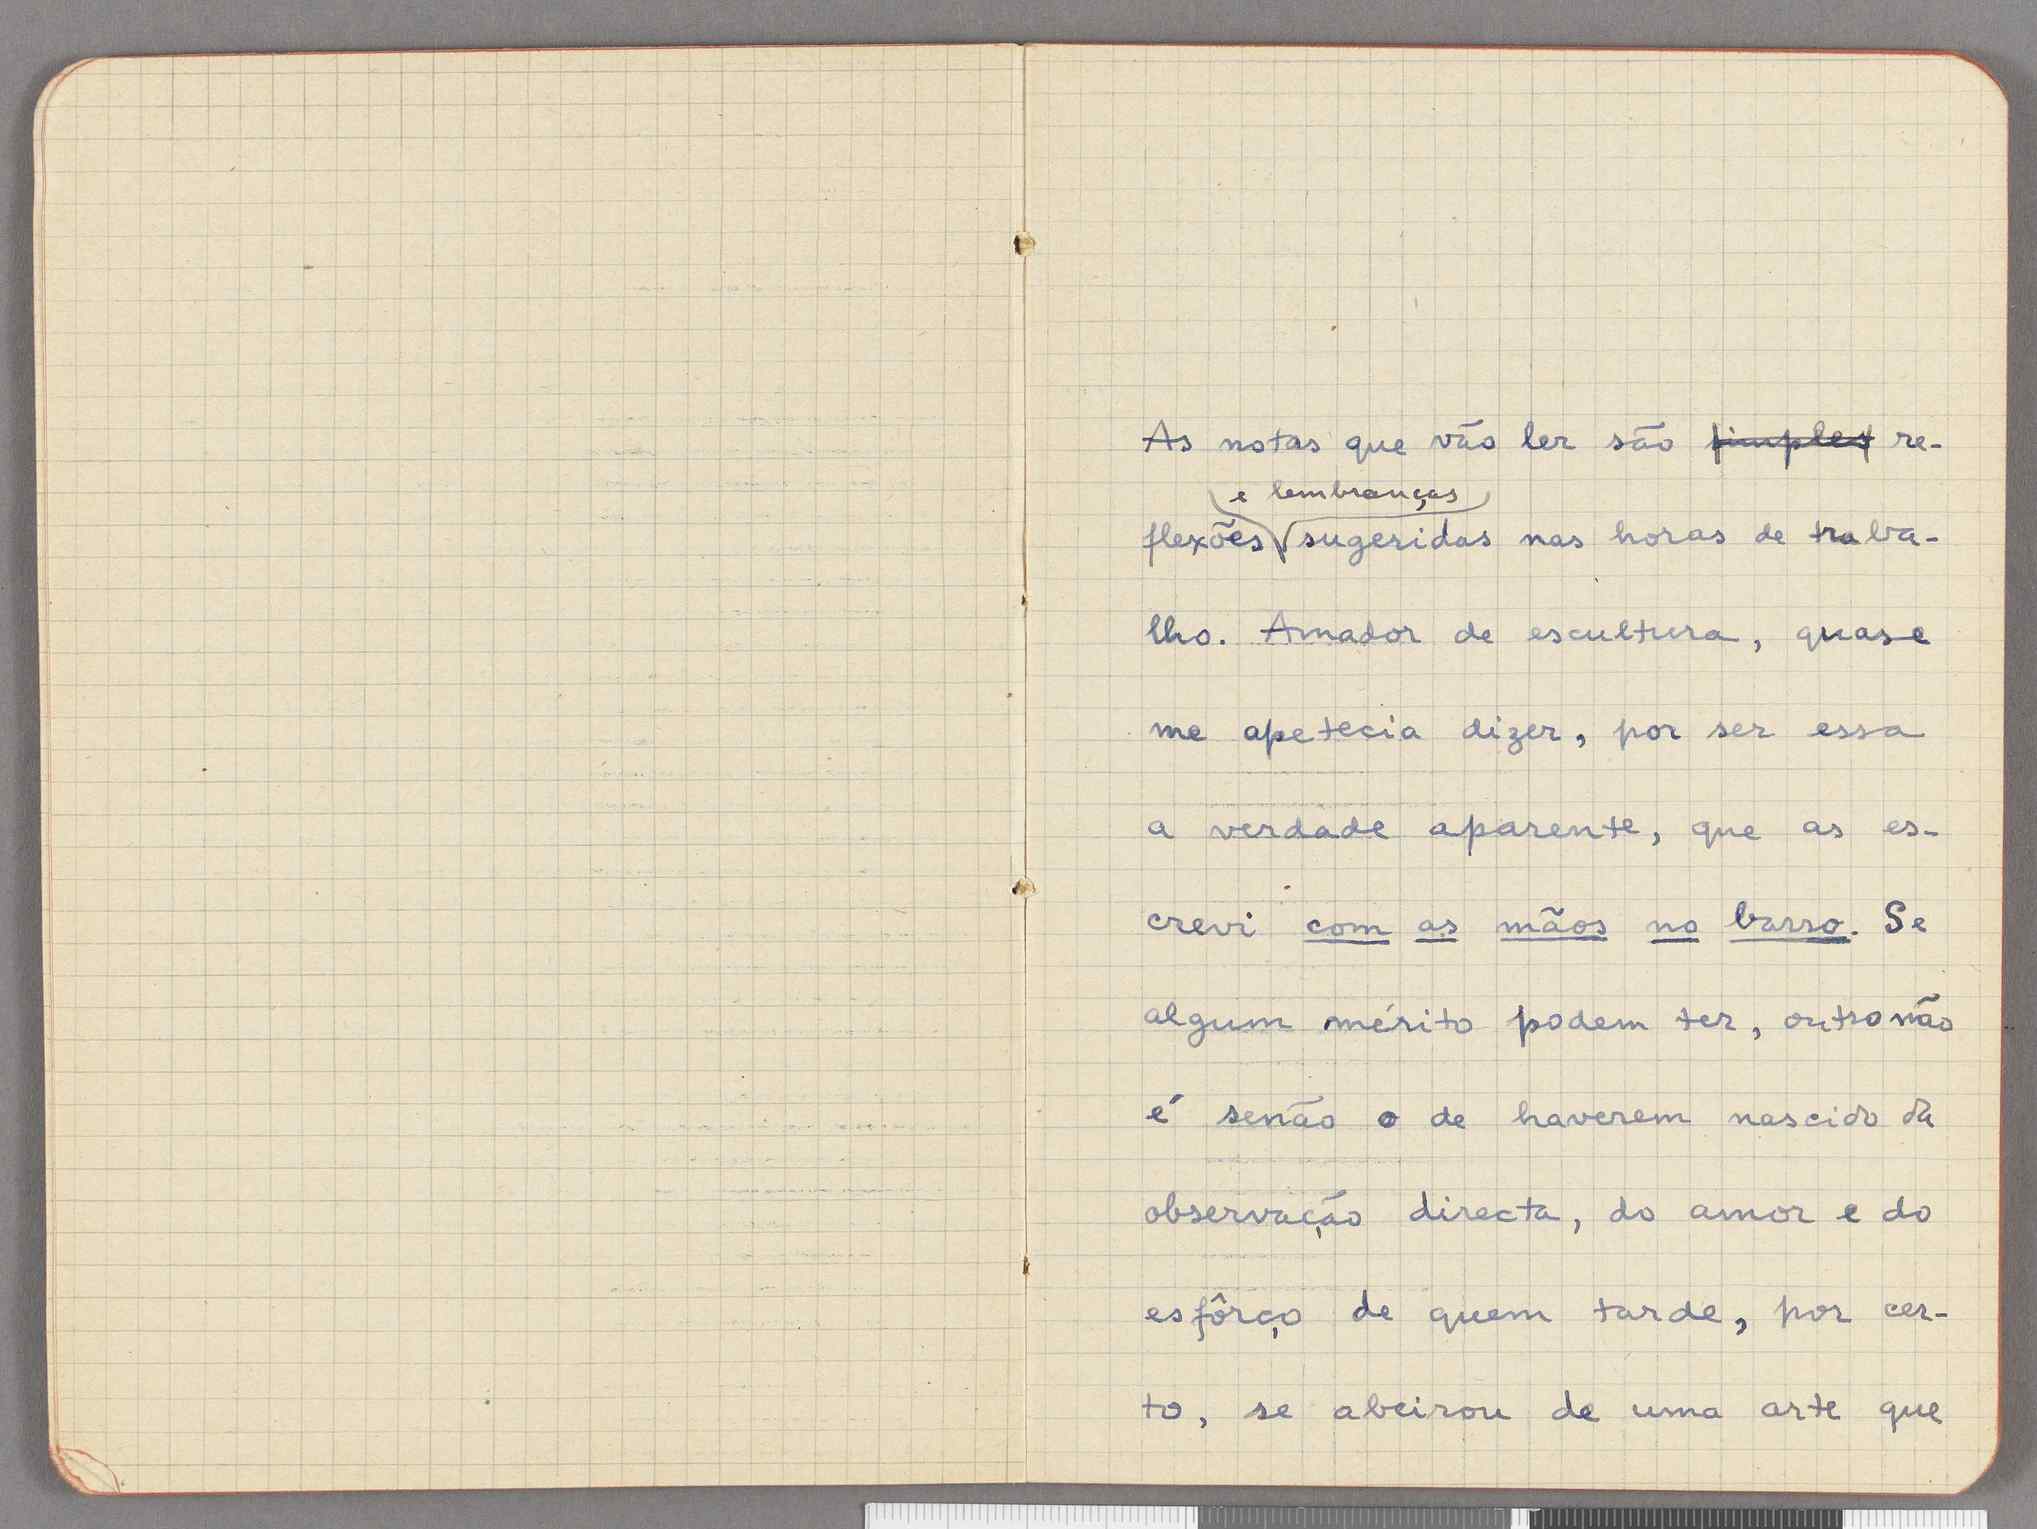 As notas que vão ler são simples re-
e lembranças
flexões sugeridas nas horas de traba-
lho. Amador de escultura, quase
me apetecia dizer, por ser essa
a verdade aparente, que as es-
crevi com as mãos no barro. Se
algum mérito podem ter, outro não
é senão o de haverem nascido da
observação directa, do amor e do
esfôrço de quem tarde, por cer-
to, se abeirou de uma arte que